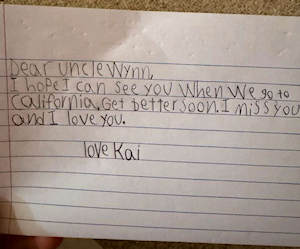 Dear Uncle Wynn,
I hope I can see you When We go to
California. Get better soon. I miss you
and I love you.
love Kai